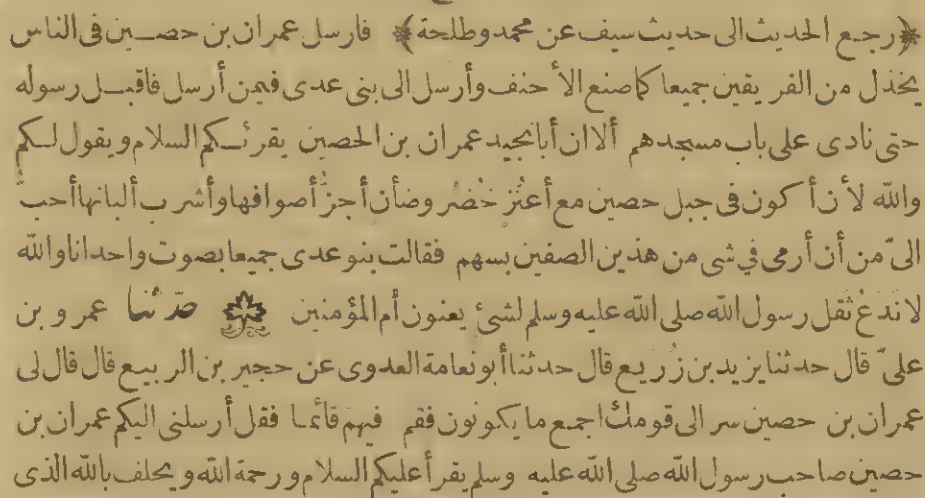 ﴿رجع الحديث الى حديث سيف عن محمد وطلحة﴾ فارسل عمران بن حصين فى الناس
يخذل من الفريقين جميعا كما صنع الأحنف وأرسل الى بنى عدى فيمن أرسل فاقبل رسوله
حتى نادى على باب مسجدهم ألا ان أبانجيد عمران بن الحصين يقرئكم السلام ويقول لكم
والله لأن أكون فى جبل حصين مع أعنز خضر وضأن أجز أصوافها وأشرب ألبانها أحب
الىّ من أن أرمى فى شئ من هذين الصفين بسهم فقالت بنو عدى جميعا بصوت واحد انا والله
لا ندع ثقل رسول الله صلى الله عليه وسلم لشئ يعنون أم المؤمنين حدثنا عمرو بن
علىّ قال حدثنا يزيد بن زريع قال حدثنا أبو نعامة العدوى عن حجير بن الربيع قال قال لى
عمران بن حصين سر الى قومك اجمع ما يكونون فقم فيهم قائما فقل أرسلنى اليكم عمران بن
حصين صاحب رسول الله صلى الله عليه وسلم يقرأ عليكم السلام ورحمة الله ويحلف بالله الذى